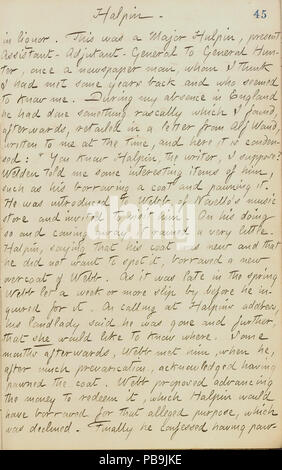 Halpin. 45
in liquor. This was a Major Halpin, present
Assistant-Adjutant-General to General Hun-
ter, once a newspaper man, whom I think
I had met some years back and who seemed
to know me. During my absence in England
he had done something rascally which I found,
afterwards, retailed in a letter from Alf Waud,
written to me at the time, and here it is conden-
sed: "You know Halpin, the writer, I suppose?
Welden told me some interesting items of him,
such as his borrowing a coat and pawning it.
He was introduced to Webb, of Nowell's music
store and invited to visit him. On his doing
so and coming away it rained a very little.
Halpin, saying that his coat was new and that
he did not want to spot it, borrowed a new
overcoat of Webb. As it was late in the spring
Webb let a week or more slip by before he in-
quired for it. On calling at Halpin's address,
his landlady said he was gone and further
that she would like to know where. Some
months afterwards, Webb met him, when he,
after much prevarication, acknowledged having
pawned the coat. Webb proposed advancing
the money to redeem it, which Halpin would
have borrowed for that alleged purpose, which
was declined. Finally he confessed having pawn-
alamy
Image ID: PB9JKE
www.alamy.com